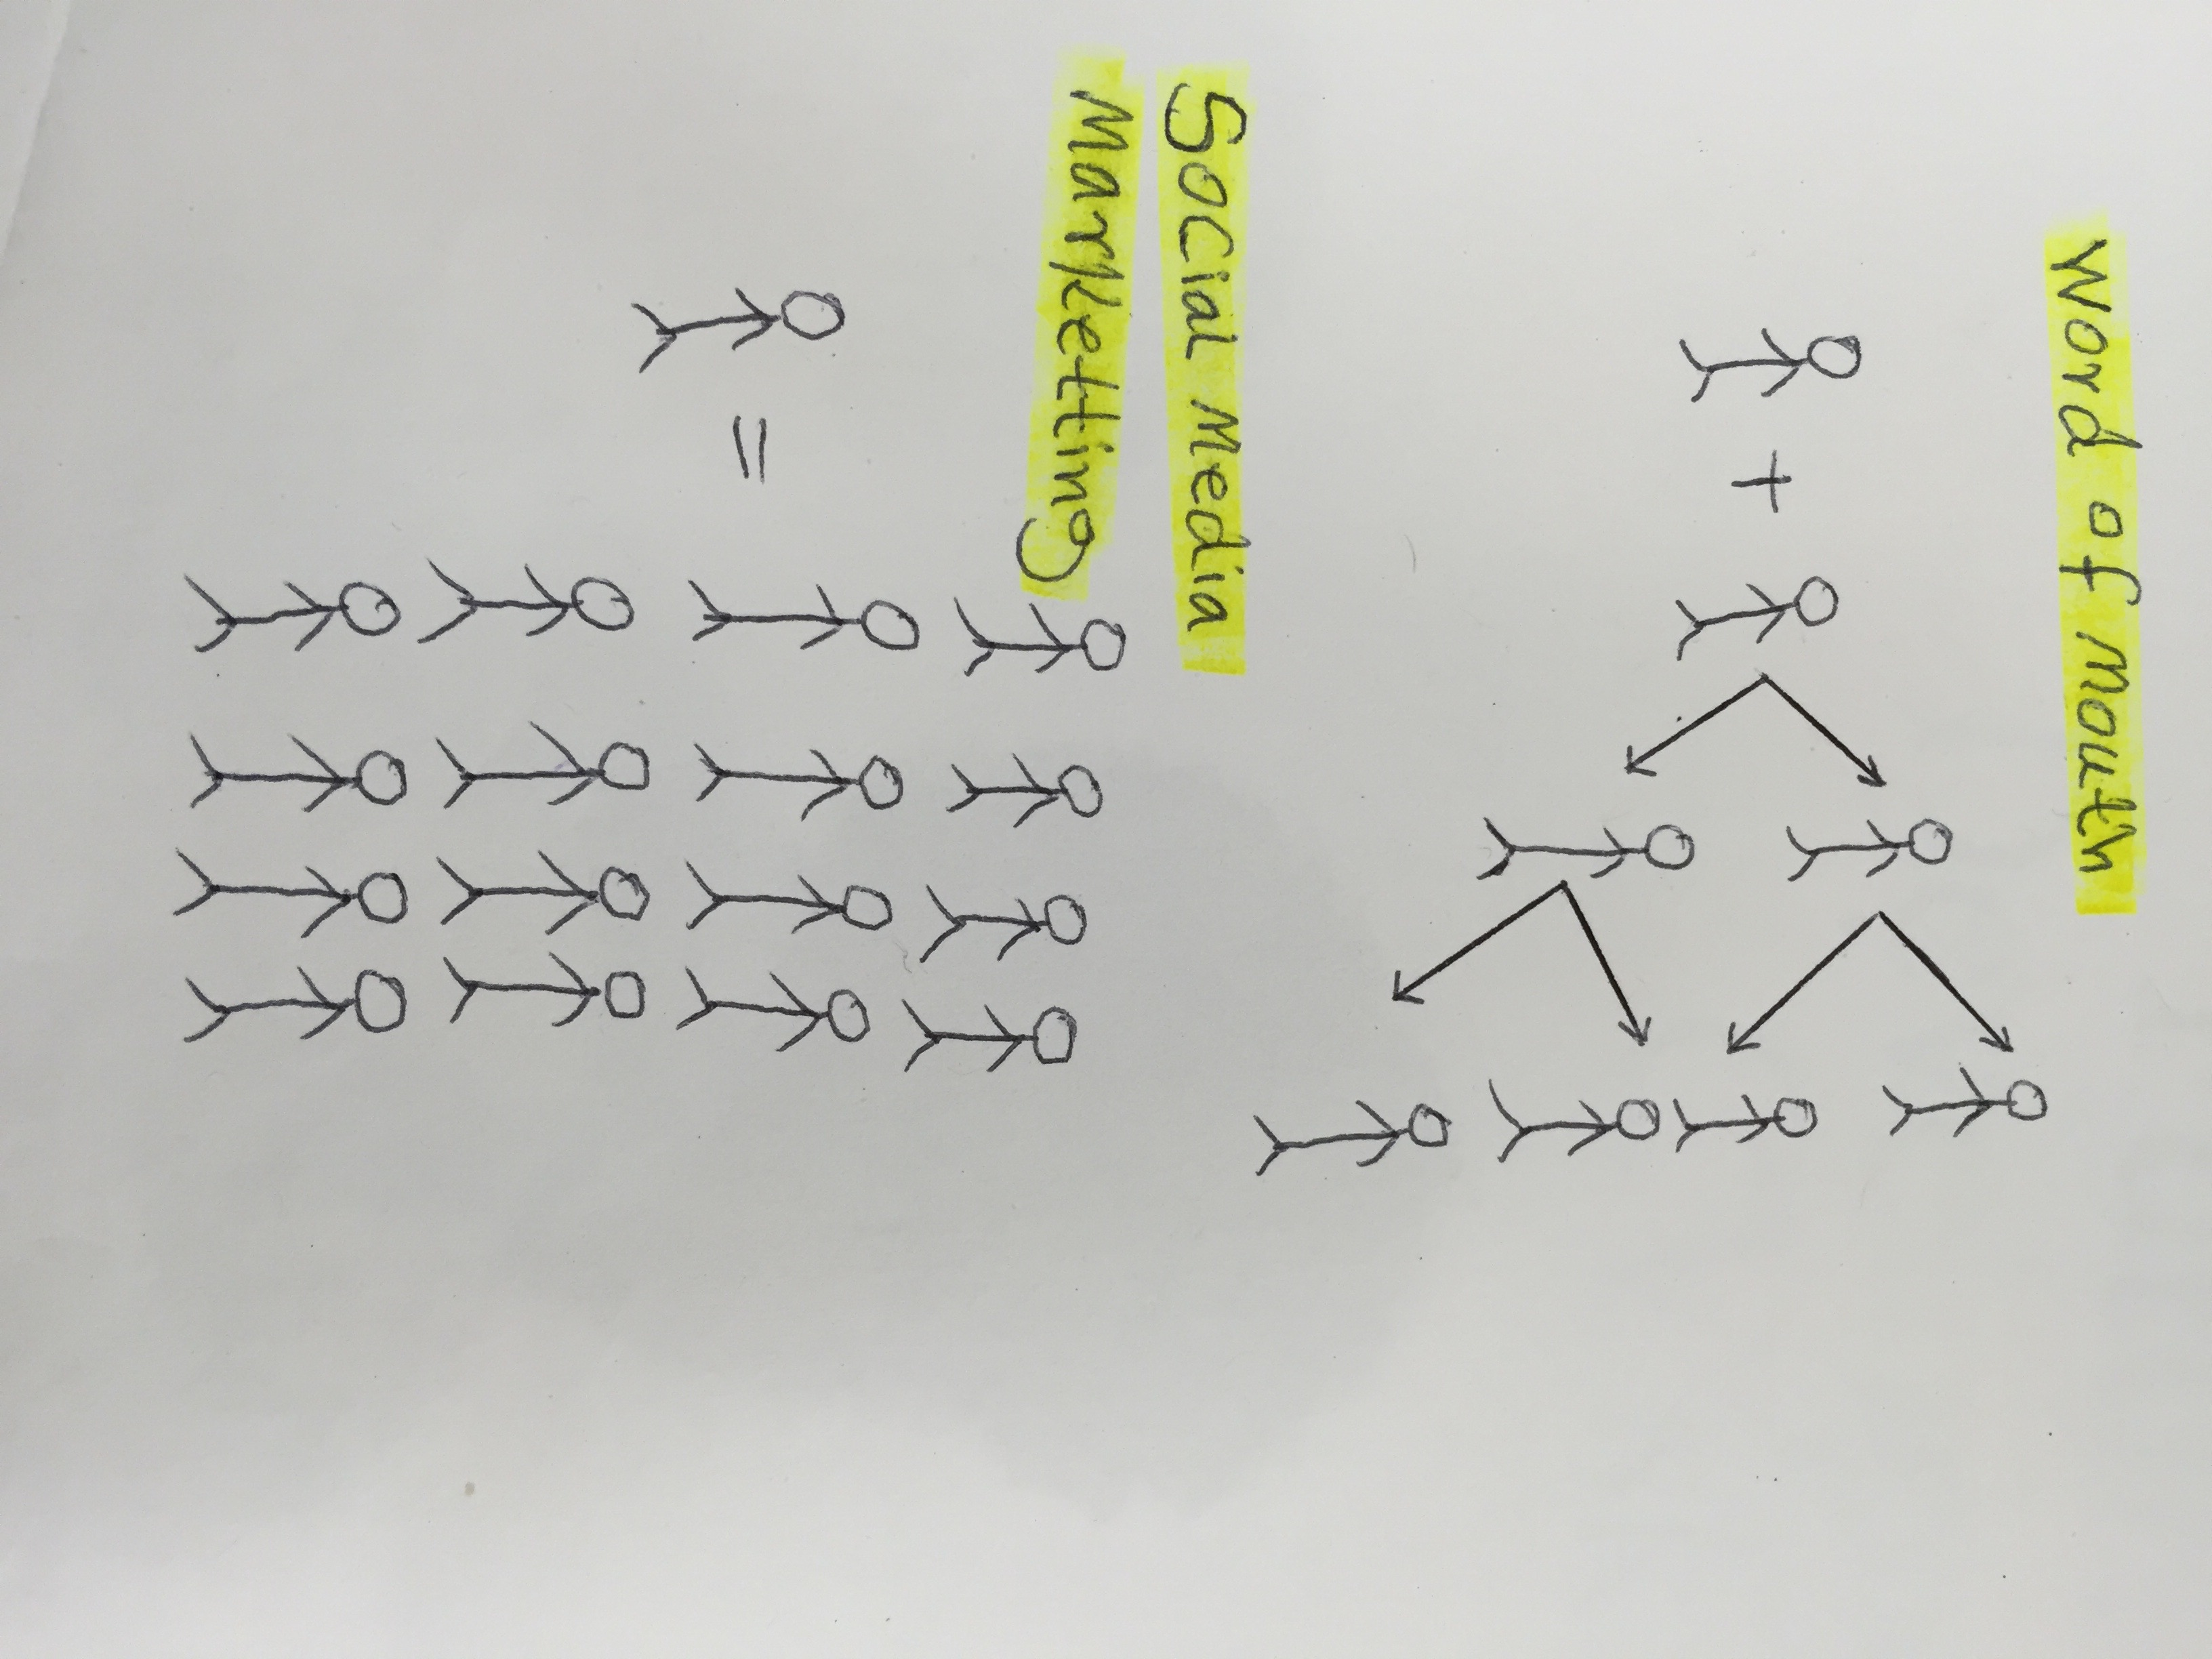 Word of mouth
+
Social Media
Marketting
=